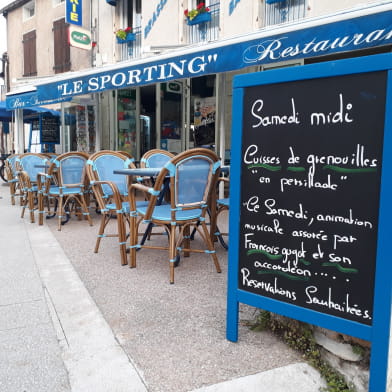 RIE
BRASSERIE
"LE SPORTING"
Restaurant
Bar
Samedi midi
Cuisses de grenouilles
"en persillade"
-Ce Samedi, animation
musicale assurée par
François gugot et son
accordéon.....
Réservations Souhaitées.